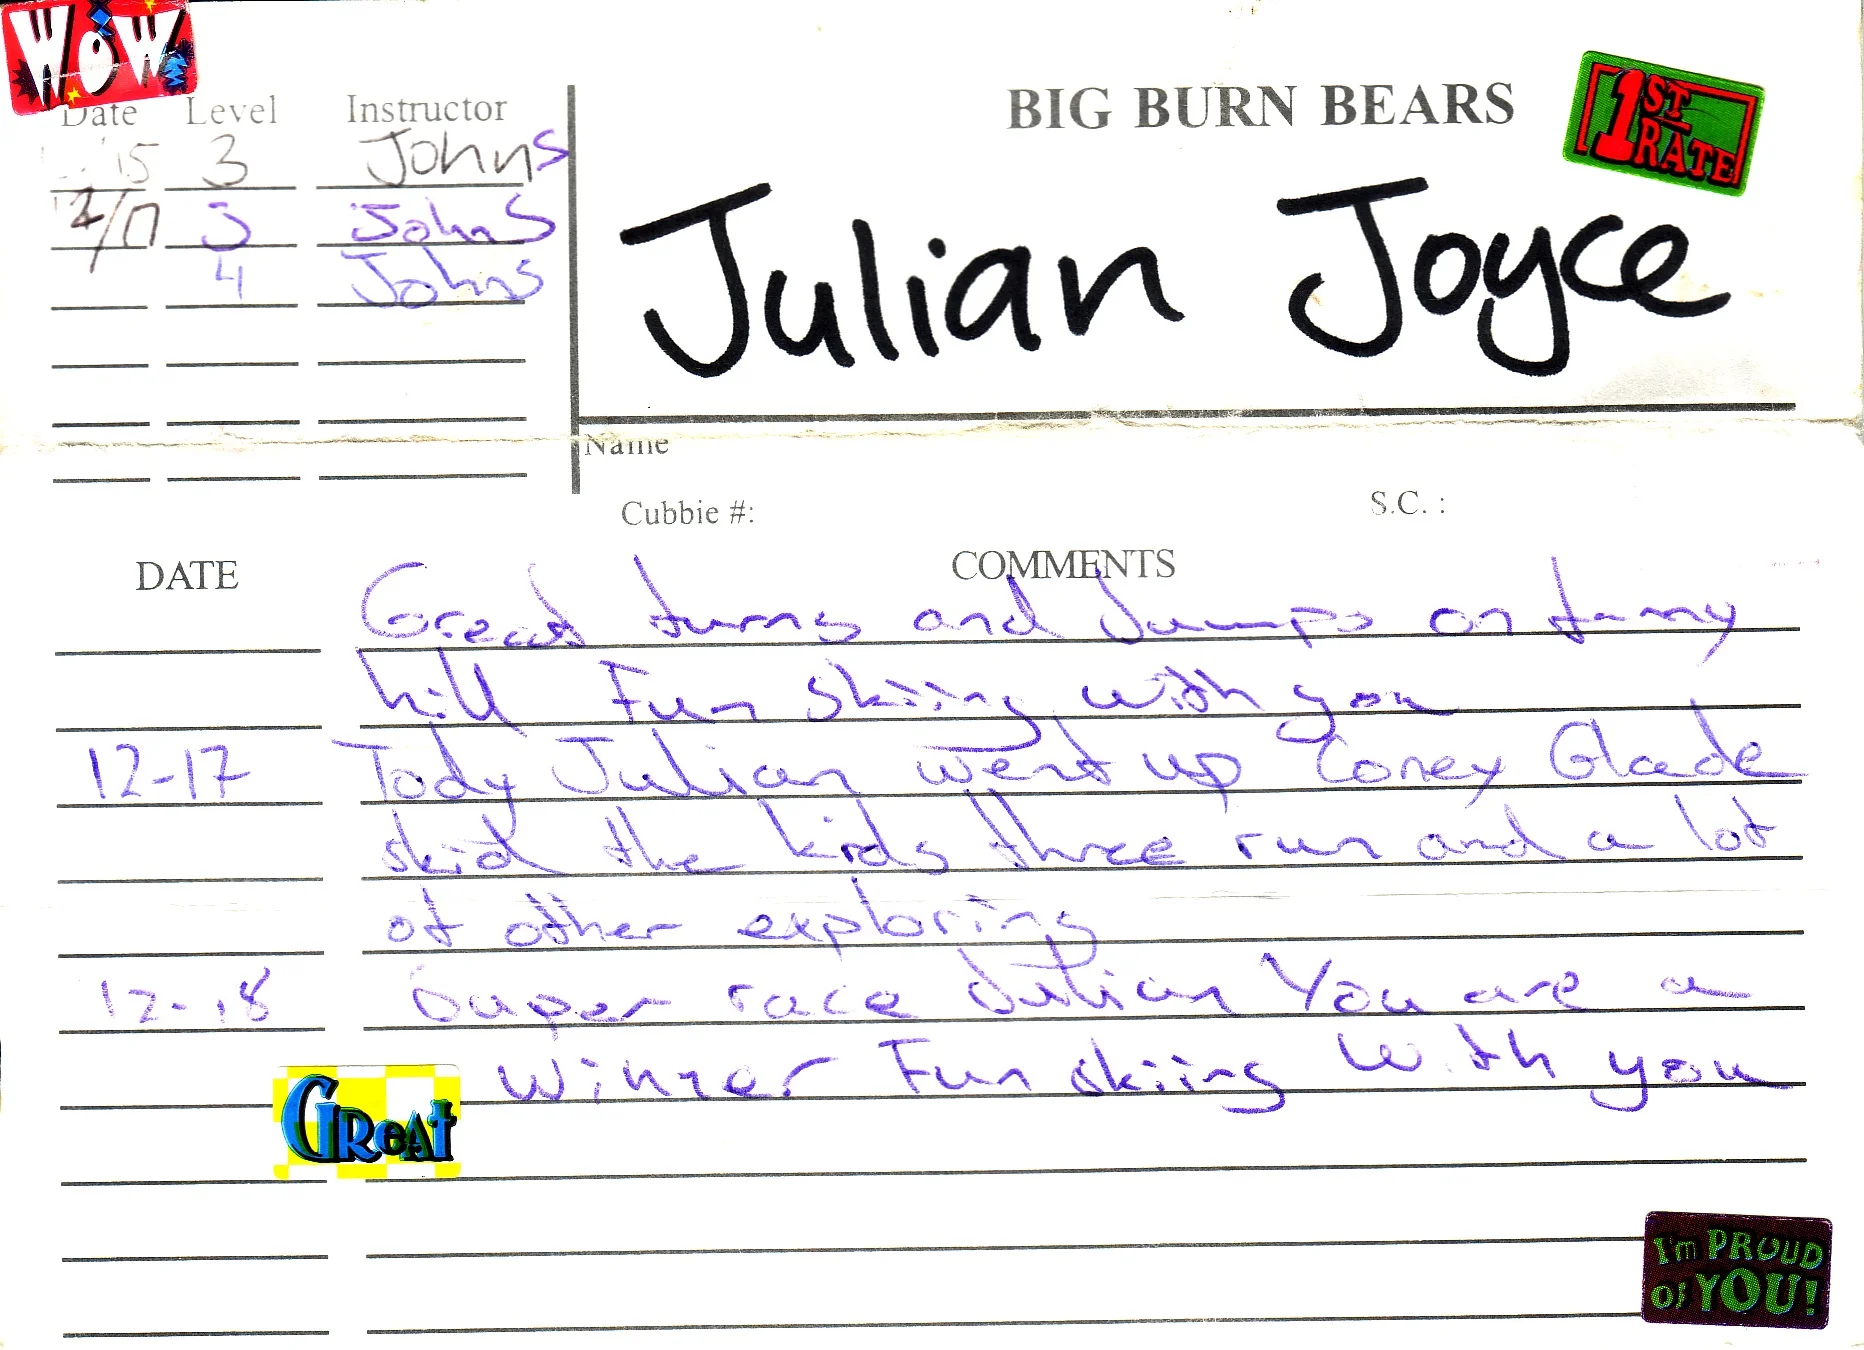 WOW
BIG BURN BEARS
1ST RATE
Date Level Instructor
15 3 Johns
12/17 3 Johns
4 Johns
Julian Joyce
Name
Cubbie #: S.C. :
DATE COMMENTS
Great turns and Jumps on
hill Fun skiing with you
12-17 Tody Julian went up Coney Glade
skid the kids three run and a lot
of other exploring
12-18 Super race Julian You are a
Winner Fun skiing With you
GREAT
I'm PROUD
of YOU!